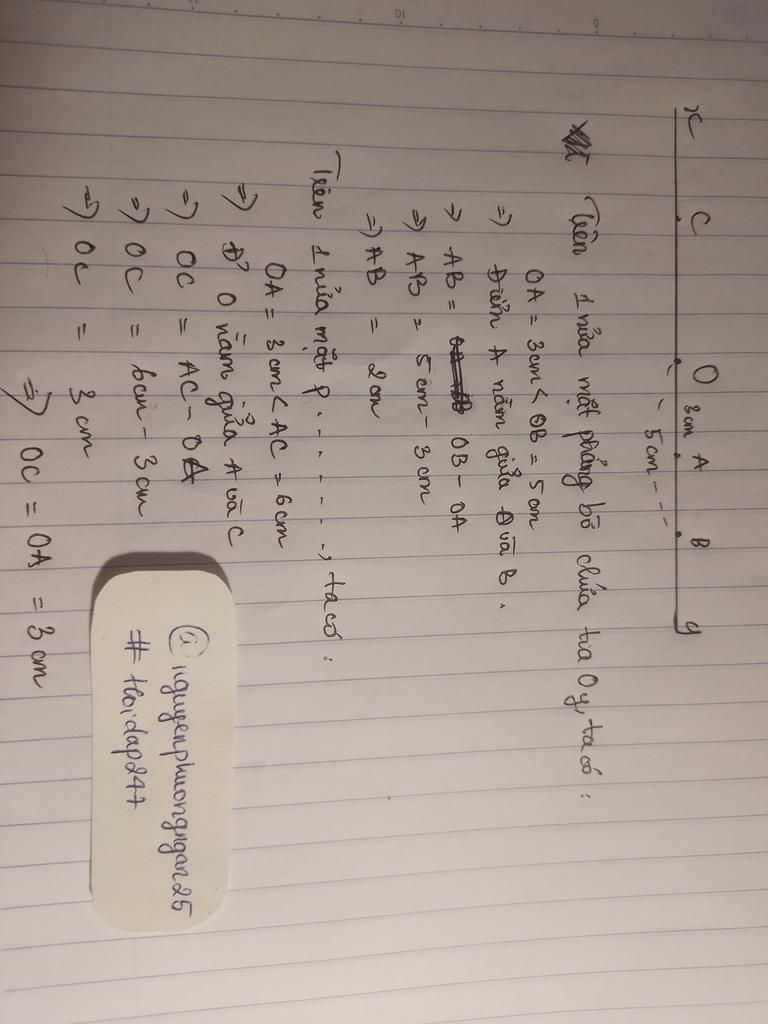 x C O 3cm A B y
5cm
Trên 1 nửa mặt phẳng bờ chứa tia Oy, ta có :
OA = 3cm < OB = 5cm
=) Điểm A nằm giữa O và B .
=) AB = OB - OA
=) AB = 5cm - 3cm
=) AB = 2cm
Trên 1 nửa mặt p . . . . . . ., ta có :
OA = 3cm < AC = 6cm
=) Đ' O nằm giữa A và C
=) OC = AC - OA
=) OC = 6cm - 3cm
=) OC = 3cm
=) OC = OA = 3cm
@ nguyenphuongngan25
# Hoidap247
5
10